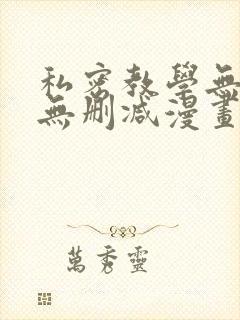 私密教學無
無刪減漫畫
萬秀靈